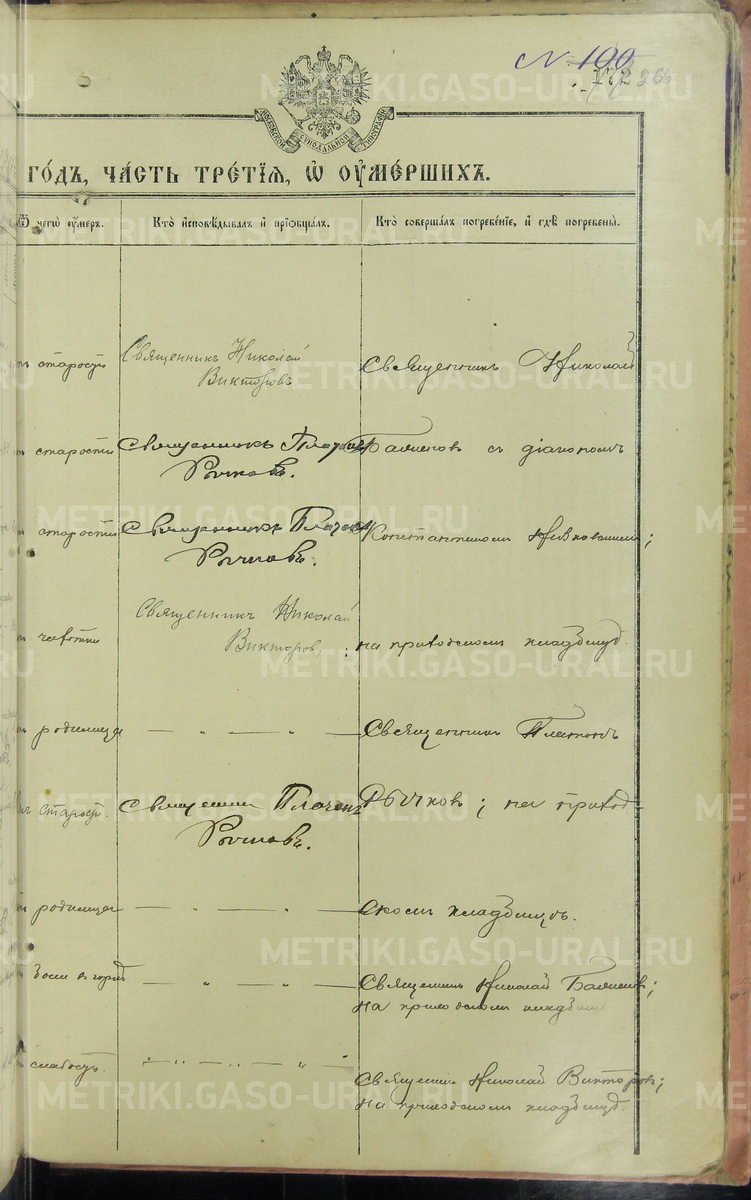 N 100
МОСКОВСКОЙ СѴНОДАЛЬНОЙ ТИПОГРАФІИ
ГО́ДЪ, ЧА́СТЬ ТРЕ́ТІѦ, Ѡ҆ ОУ҆МЕ́РШИХЪ.
Ѿ чегѡ̀ оу҆́меръ.
Кто̀ и҆сповѣ́дывалъ и҆ прїѡбща́лъ.
Кто̀ соверша́лъ погребе́нїе, и҆ гдѣ̀ погребены̀.
старости
Священникъ Николай
Викторовъ
Священникъ Николай
старости
Священникъ Платонъ
Рычковъ.
Баминов съ діакономъ
старости
Священникъ Платон
Рычковъ.
Константином
чахотки
Священникъ Николай
Викторовъ
на приходскомъ кладбищѣ.
родимца
— „ — „ —
Священникъ Платонъ
старости.
Священник Платонъ
Рычковъ.
Рычковъ; на приход-
родимца
— „ — „ —
скомъ кладбищѣ.
боли въ горлѣ
— „ — „ —
Священникъ Николай
на приходскомъ кладбищѣ
слабости.
— „ — „ — „ —
Священникъ Николай Викторовъ;
на приходскомъ кладбищѣ.
METRIKI.GASO-URAL.RU